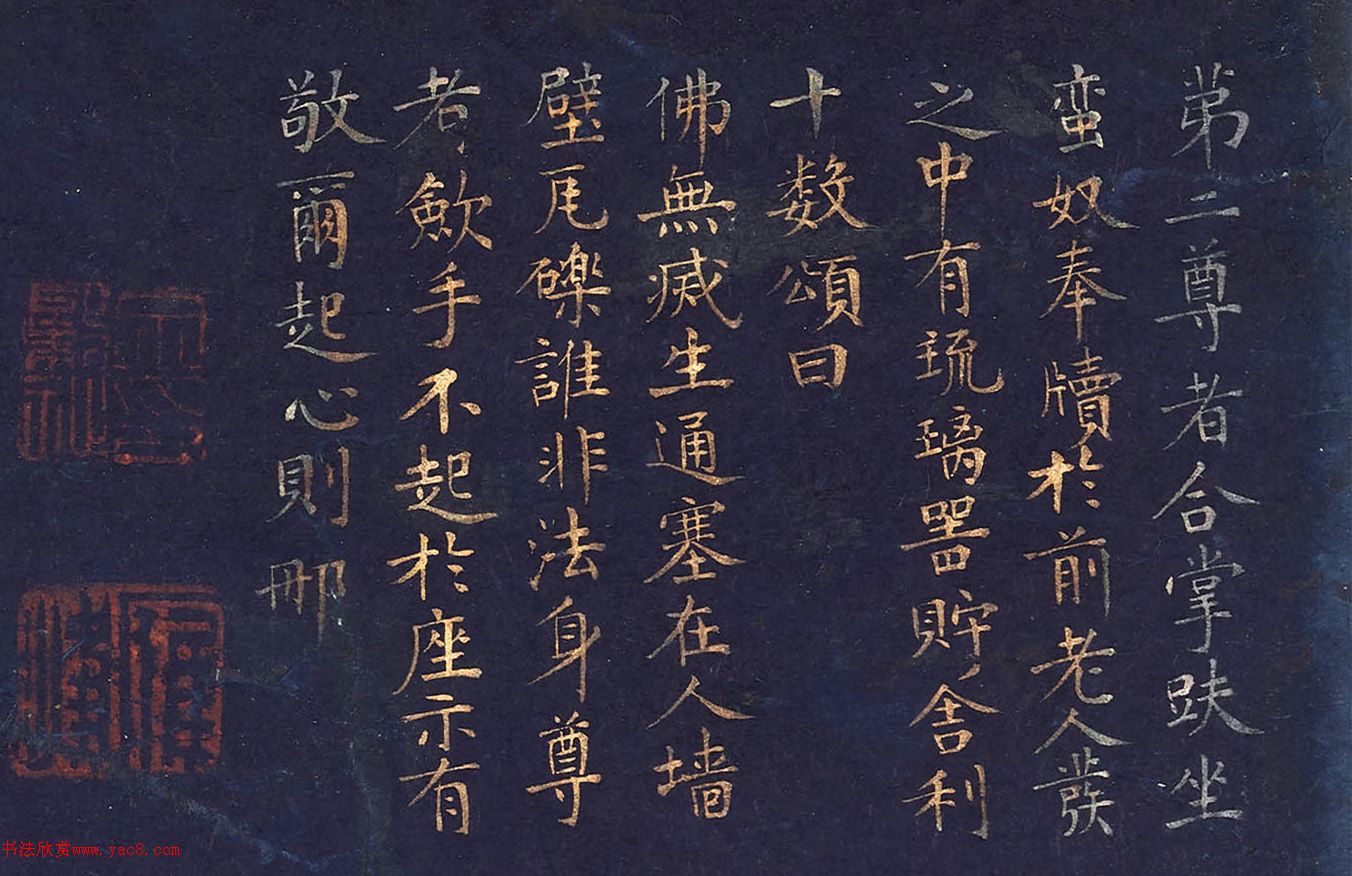 苐二尊者合掌趺坐
蛮奴奉牘於前老人發
之中有琉璃器貯舎利
十数頌曰
佛無滅生通塞在人墙
壁瓦礫誰非法身尊
者歛手不起於座示有
敬爾起心則那
书法欣赏www.yac8.com